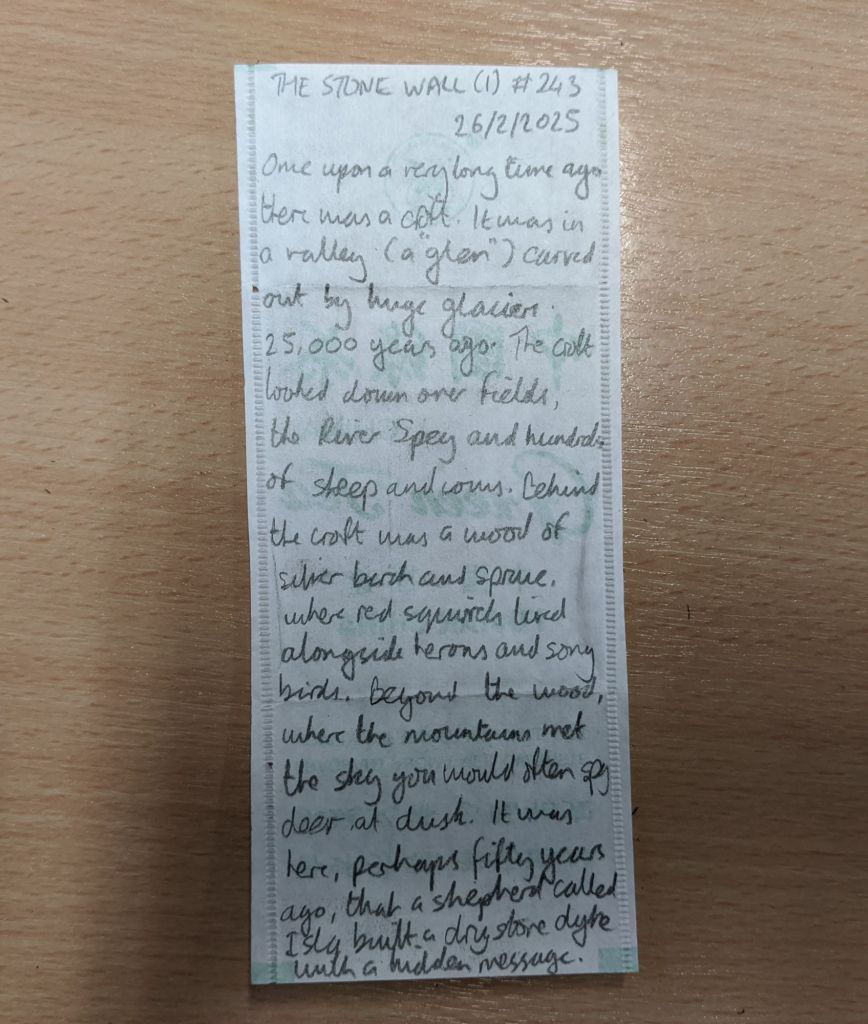 THE STONE WALL (1) #243
26/2/2025
Once upon a very long time ago
there was a croft. It was in
a valley (a "glen") carved
out by huge glaciers
25,000 years ago. The croft
looked down over fields,
the River Spey and hundreds
of sheep and cows. Behind
the croft was a wood of
silver birch and spruce,
where red squirrels lived
alongside herons and song
birds. Beyond the wood,
where the mountains met
the sky you would often spy
deer at dusk. It was
here, perhaps fifty years
ago, that a shepherd called
Isla built a dry stone dyke
with a hidden message.